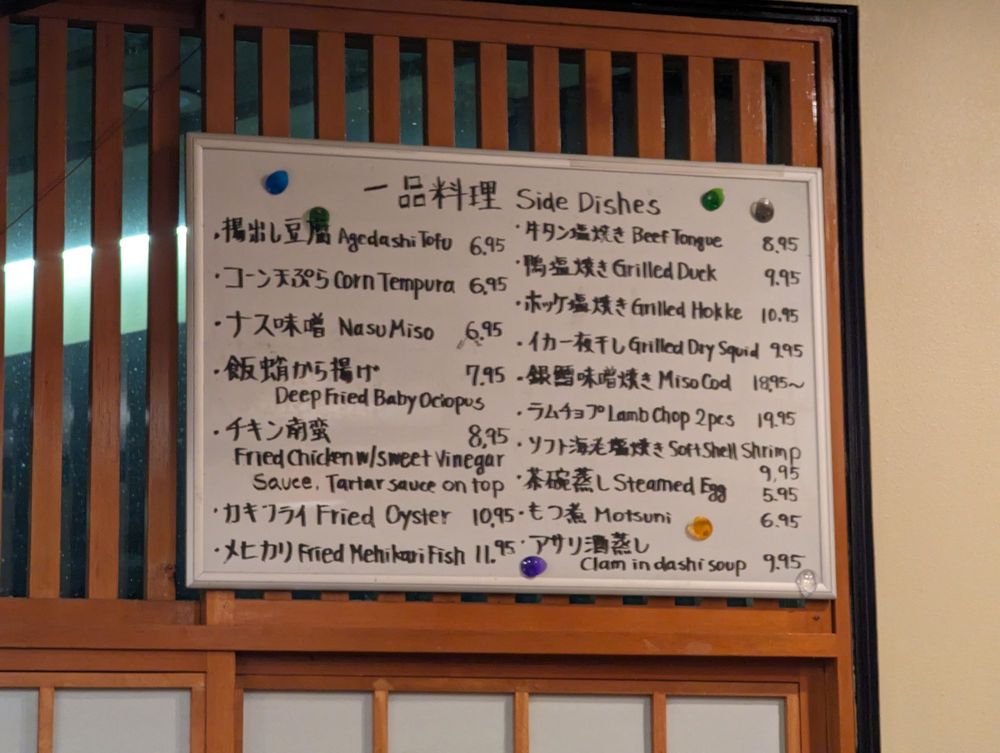 一品料理 Side Dishes
・揚出し豆腐 Agedashi Tofu 6.95
・コーン天ぷら Corn Tempura 6.95
・ナス味噌 Nasu Miso 6.95
・飯蛸から揚げ 7.95
Deep Fried Baby Octopus
・チキン南蛮 8.95
Fried Chicken w/sweet Vinegar
Sauce, Tartar sauce on top
・カキフライ Fried Oyster 10.95
・メヒカリ Fried Mehikari Fish 11.95
・牛タン塩焼き Beef Tongue 8.95
・鴨塩焼き Grilled Duck 9.95
・ホッケ塩焼き Grilled Hokke 10.95
・イカ一夜干し Grilled Dry Squid 9.95
・銀鱈味噌焼き Miso Cod 18.95〜
・ラムチョプ Lamb Chop 2pcs 19.95
・ソフト海老塩焼き Soft Shell Shrimp
9.95
・茶碗蒸し Steamed Egg 5.95
・もつ煮 Motsuni 6.95
・アサリ酒蒸し
Clam in dashi soup 9.95